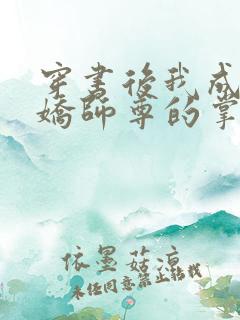 穿書後我成
嬌師尊的掌
依墨菇涼
未經同意禁止轉載